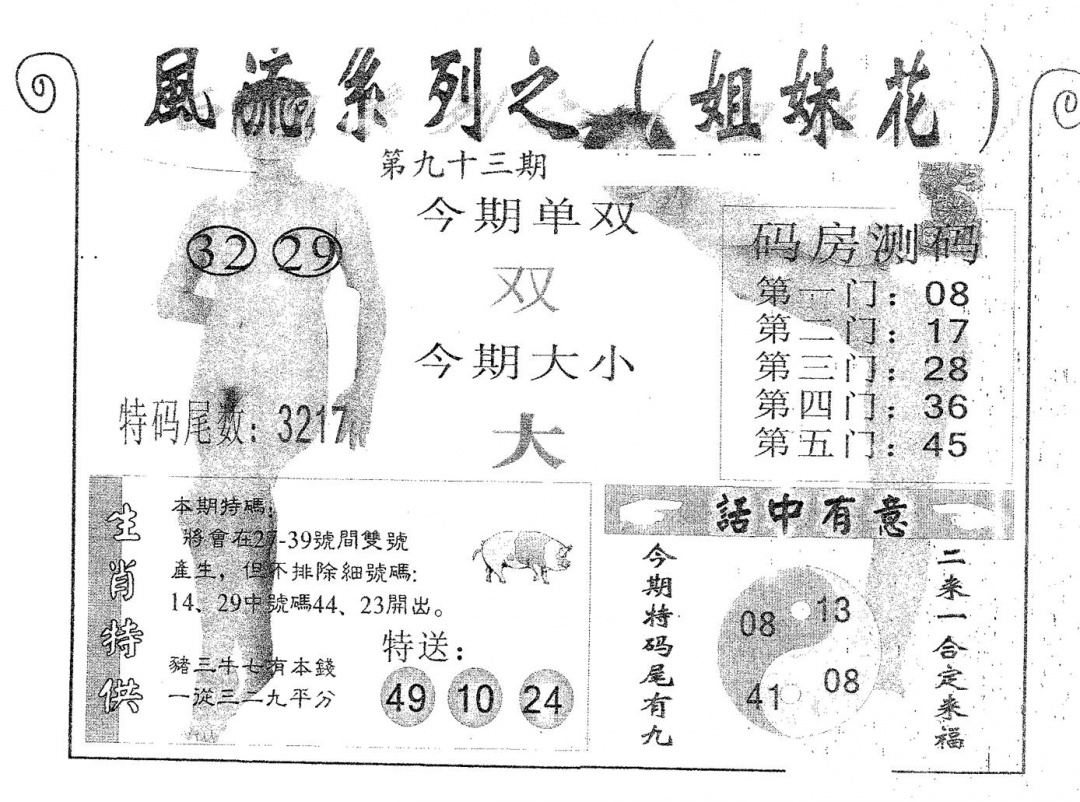 風流系列之（姐妹花）
第九十三期
今期单双
双
今期大小
大
32 29
特码尾数：3217
码房测码
第一门：08
第二门：17
第三门：28
第四门：36
第五门：45
生肖特供
本期特碼：
將會在27-39號間雙號
產生，但不排除細號碼：
14、29中號碼44、23開出。
豬三牛七有本錢
一從三二九平分
特送：
49 10 24
話中有意
今期特码尾有九
08 13
41 08
二来一合定来福